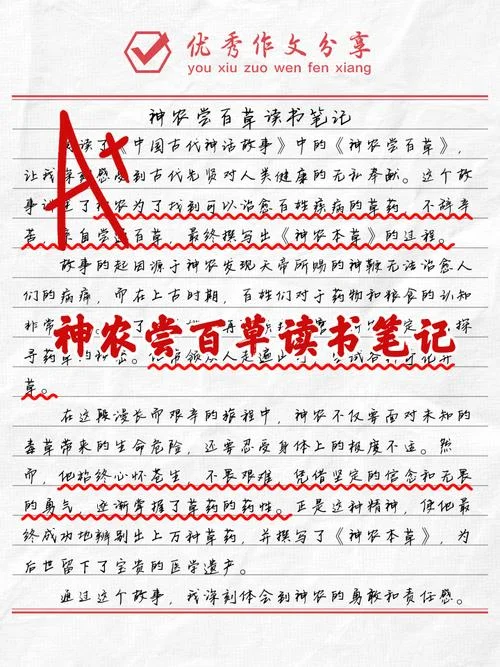 优秀作文分享
you xiu zuo wen fen xiang
神农尝百草读书笔记
读了《中国古代神话故事》中的《神农尝百草》，
让我深刻感受到古代先贤对人类健康的无私奉献。这个故
事了神农为了找到可以治愈百姓疾病的草药，不辞辛
苦，亲自尝遍百草，最终撰写出《神农本草》的过程。
故事的起因源于神农发现天帝所赐的神鞭无法治愈人
们的病痛，而在上古时期，百姓们对于药物和粮食的认知
非常 定 探
神农尝百草读书笔记
寻药草的 人走遍
草。
在这段漫长而艰辛的旅程中，神农不仅要面对未知的
毒草带来的生命危险，还要忍受身体上的极度不适。然
而，他始终心怀苍生，不畏艰难，凭借坚定的信念和无畏
的勇气，逐渐掌握了草药的药性。正是这种精神，使他最
终成功地辨别出上万种草药，并撰写了《神农本草》，为
后世留下了宝贵的医学遗产。
通过这个故事，我深刻体会到神农的勇敢和责任感。
A+